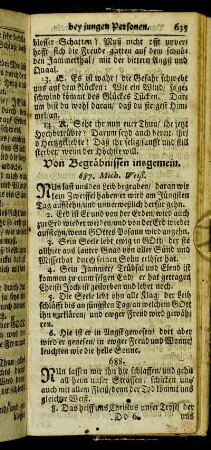 bey jungen Personen. 635
blosser Schatten? Muß nicht offt unver-
hofft sich die Freude gatten auf dem schnö-
den Jammerthal / mit der bittern Angst und
Quaal.
13. E. Es ist wahr / die Gefahr schwebt
uns auf dem Rücken: Wie ein Wind / so ge-
schwind kommt des Glückes Tücken. Darum
bist du wohl daran / daß du steigst Him-
mel an.
14. K. Seht ihr nun euer Thun / ihr jetzt
Hochbetrübte? Darum seyd auch bereit / ihr
Hertzgeliebte / Daß ihr selig sanfft und still
sterbet / wenn der Höchste will.
Von Begräbnissen insgemein.
687. Mich. Weiß.
NUn last uns den Leib begraben / daran wir
kein Zweiffel haben / er wird am Jüngsten
Tag auffstehn / und unverweßlich herfür gehn.
2. Erd ist er und von der Erden / wird auch
zur Erd wieder werden / und von der Erd wieder
aufferstehn / wenn GOttes Posaun wird angehn.
3. Sein Seele lebt ewig in GOtt / der sie
allhier aus lauter Gnad von aller Sünd und
Missethat durch seinen Sohn erlöset hat.
4. Sein Jammer / Trübsal und Elend ist
kommen zu eim selgen End / er hat getragen
Christi Joch / ist gestorben und lebet noch.
5. Die Seele lebt ohn alle Klag / der Leib
schläfft bis an jüngsten Tag / an welchem GOtt
ihn verklären / und ewger Freud wird gewäh-
ren.
6. Hie ist er in Angst gewesen / dort aber
wird er genesen / in ewger Freud und Wonne /
leuchten wie die helle Sonne.
688.
NUn lassen wir ihn hie schlaffen / und gehn
all heim unser Strassen / schicken uns
auch mit allem Fleiß / denn der Tod kommt uns
gleicher Weiß.
8. Das helff uns Christus unser Trost / der
Dd 6 uns